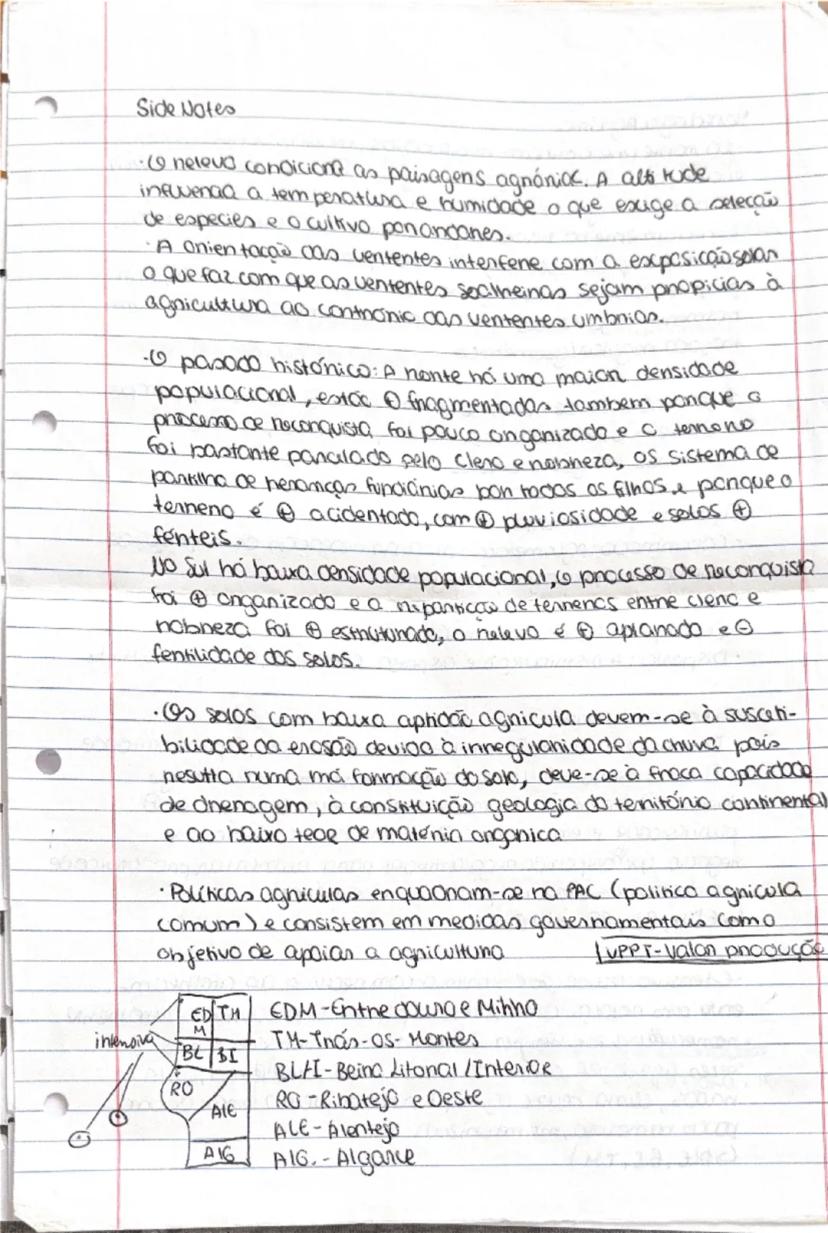 Side Notes
·O relevo condiciona as paisagens agrárias. A altitude
influencia a temperatura e humidade o que exige a selecção
de especies e o cultivo por andares.
·A orientação das vertentes interfere com a exposição solar
o que faz com que as vertentes soalheiras sejam propicias à
agricultura ao contrário das vertentes umbrias.
·O passado histórico: A norte há uma maior densidade
populacional, estão ⊕ fragmentadas tambem porque o
processo de reconquista foi pouco organizado e o terreno
foi bastante parculado pelo clero e nobreza, os sistema de
partilha de heranças fundiárias por todos os filhos e porque o
terreno é ⊕ acidentado, com ⊕ pluviosidade e solos ⊕
férteis.
No Sul há baixa densidade populacional, o processo de reconquista
foi ⊕ organizado e a repartição de terrenos entre clero e
nobreza foi ⊕ estruturado, o relevo é ⊕ aplanado e ⊖
fertilidade dos solos.
·Os solos com baixa aptidão agricula devem-se à suscati-
bilidade da erosão devida à irregularidade da chuva pois
resulta numa má formação do solo, deve-se à fraca capacidade
de drenagem, à constituição geologia do território continental
e ao baixo teor de matéria organica
·Políticas agriculas enquadram-se na PAC (politica agricula
comum) e consistem em medidas governamentais com o
objetivo de apoiar a agricultura
VPPT-Valor produção
ED M TM EDM-Entre douro e Minho
intensiva TM-Trás-Os-Montes
BL BI BL/I-Beira Litoral/Interior
RO RO-Ribatejo e Oeste
ALE ALE-Alentejo
⊖ ⊕
AlG AlG.-Algarve